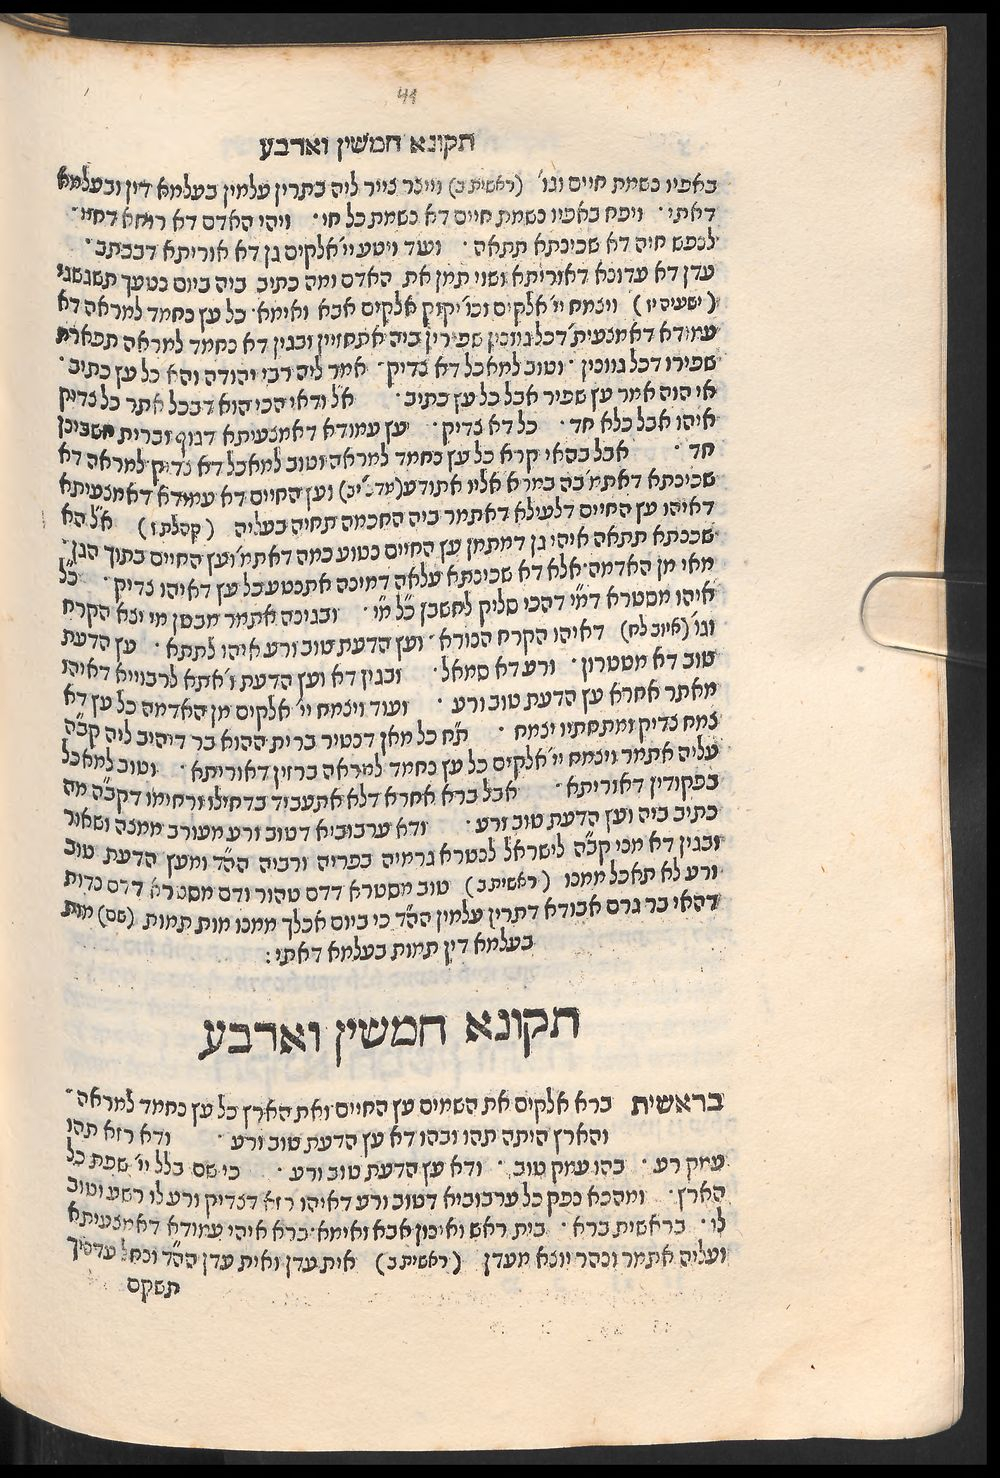 41
תקונא חמשין וארבע
באפיו נשמת חיים וגו' (ראשית ב) וייצר צייר ליה בתרין עלמין בעלמא דין ובעלמא
דאתי· ויפח באפיו נשמת חיים דא נשמת כל חי· ויהי האדם דא רוחא דחיי·
לנפש חיה דא שכינתא תתאה· ועוד ויטע יי' אלקים גן דא אוריתא דבכתב·
עדן דא עדונא דאוריתא ושוי תמן את האדם ומה כתיב ביה ביום נטעך תשגשגי
(ישעיה יז) ויצמח יי' אלקים וכו' יקוק אלקים אבא ואימא· כל עץ נחמד למראה דא
עמודא דאמצעית' דכל גוונין שפירין ביה אתחזיין ובגין דא נחמד למראה תפארת
שפירו דכל גוונין· וטוב למאכל דא צדיק· אמר ליה רבי יהודה והא כל עץ כתיב·
אי הוה אמר עץ שפיר אבל כל עץ כתיב· אל ודאי הכי הוא דבכל אתר כל צדיק
איהו אבל כלא חד· כל דא צדיק· עץ עמודא דאמצעיתא דגוף וברית חשבינן
חד· אבל בהאי קרא כל עץ נחמד למראה וטוב למאכל דא צדיק למראה דא
שכינתא דאתמ' בה במראה אליו אתודע (מדב' יב) ועץ החיים דא עמודא דאמצעיתא
דאיהו עץ החיים דלעילא דאתמר ביה החכמה תחיה בעליה (קהלת ז) א"ל הא
שכנתא תתאה איהי גן דמתמן עץ החיים נטוע כמה דאתמ' ועץ החיים בתוך הגן·
מאי מן האדמה אלא דא שכינתא עלאה דמינה אתנטע כל עץ דאיהו צדיק· כ"ל
איהו מסטרא דמ"י דהכי סליק לחשבן כ"ל מ"י· ובגינה אתמר מבטן מי יצא הקרח
וגו' (איוב לח) דאיהו הקרח הנורא· ועץ הדעת טוב ורע איהו לתתא· עץ הדעת
טוב דא מטטרון· ורע דא סמאל· ובגין דא ועץ הדעת ו' אתא לרבוייא דאיהו
מאתר אחרא עץ הדעת טוב ורע· ועוד ויצמח יי' אלקים מן האדמה כל עץ דא
צמח צדיק ומתחתיו יצמח· ת"ח כל מאן דנטיר ברית ההוא בר דיהיב ליה קב"ה
עליה אתמר ויצמח יי' אלקים כל עץ נחמד למראה ברזין דאוריתא· וטוב למאכל
בפקודין דאוריתא· אבל ברא אחרא דלא אתעביד בדחילו ורחימו דקב"ה מה
כתיב ביה ועץ הדעת טוב ורע· ודא ערבוביא דטוב ורע מעורב ממצה ושאור
ובגין דא מני קב"ה לישראל לנטרא גרמיה בפריה ורביה הה"ד ומעץ הדעת טוב
ורע לא תאכל ממנו (ראשית ב) טוב מסטרא דדם טהור ודם מסטרא דדם נדות
דהאי בר גרם אבודא דתרין עלמין הה"ד כי ביום אכלך ממנו מות תמות (שם) מות
בעלמא דין תמות בעלמא דאתי:
תקונא חמשין וארבע
בראשית ברא אלקים את השמים עץ החיים ואת הארץ כל עץ נחמד למראה·
והארץ היתה תהו ובהו דא עץ הדעת טוב ורע· ודא רזא תהו
עמק רע· בהו עמק טוב· ודא עץ הדעת טוב ורע· כי שם בלל יי' שפת כל
הארץ· ומהכא נפק כל ערבוביא דטוב ורע דאיהו רזא דצדיק ורע לו רשע וטוב
לו· בראשית ברא· בית ראש ואינון אבא ואימא· ברא איהי עמודא דאמצעיתא
ועליה אתמר ונהר יוצא מעדן (ראשית ב) אית עדן ואית עדן הה"ד ונחל עדניך
תשקם